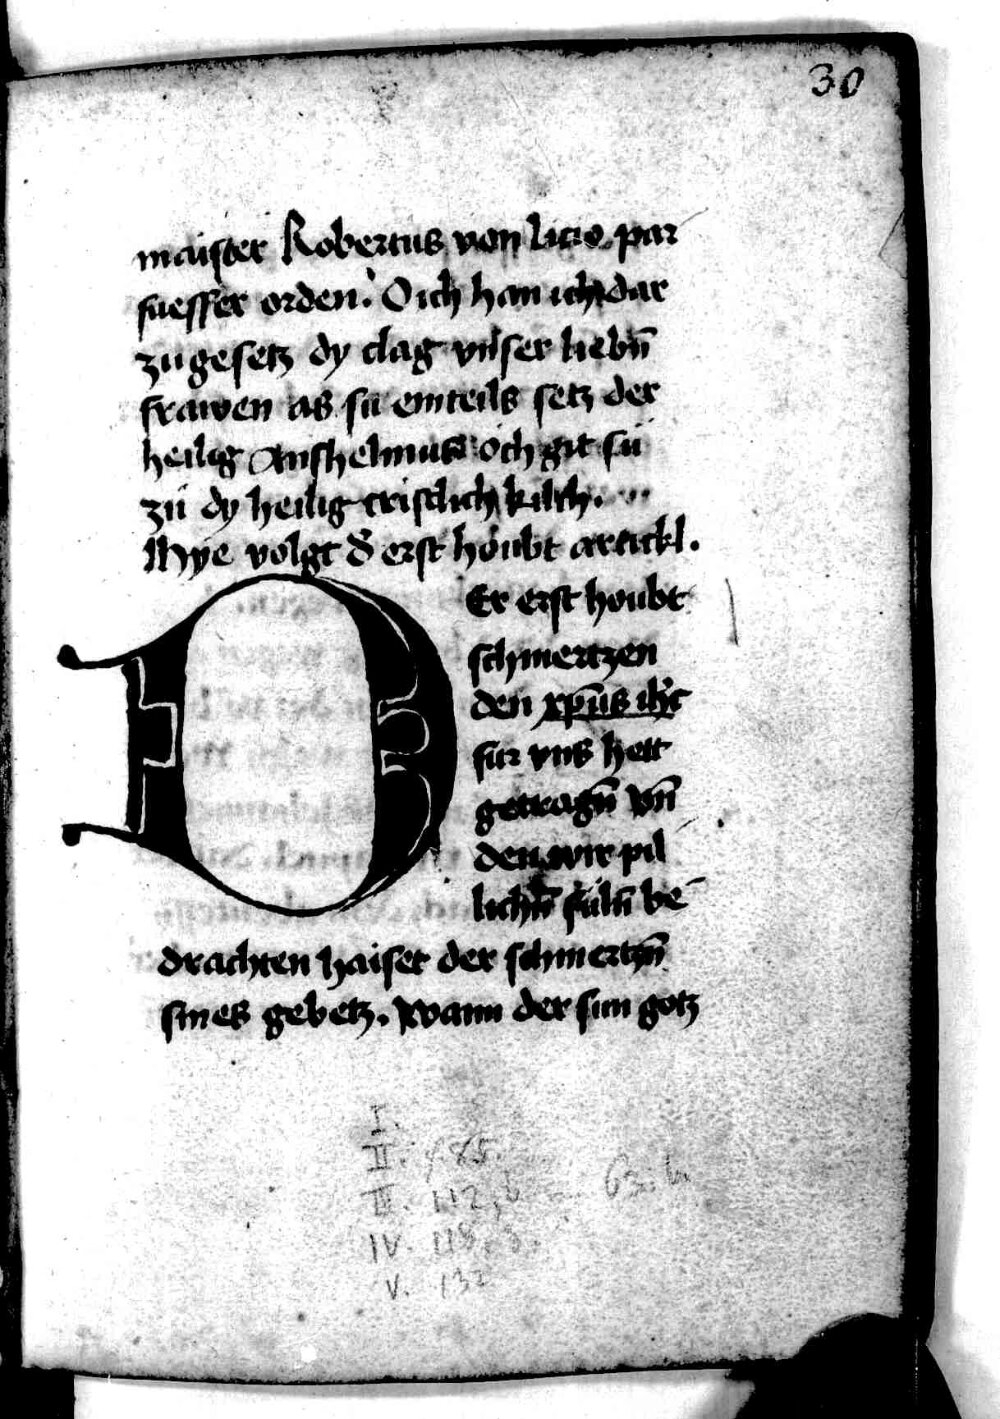 30
maister Robertus von licio par
fuesser orden. Och han ich dar
zu gesetz dy clag vnser liebn̄
frawen as sü einteils setz der
heilig Anshelmus och git sü
zü dy heilig cristlich kilch.
Hye volgt d' erst hoùbt artickl.
Er erst houbt
schmertzen
den xp̄us ih'c
für vns hett
getragn̄ vn̄
den wir pil
lichn̄ süln̄ be
drachten haiset der schmertzn̄
sines gebetz. Wann der sun gotz
I.
II.
III. 112, b
IV. 118,
V. 132
63. b.